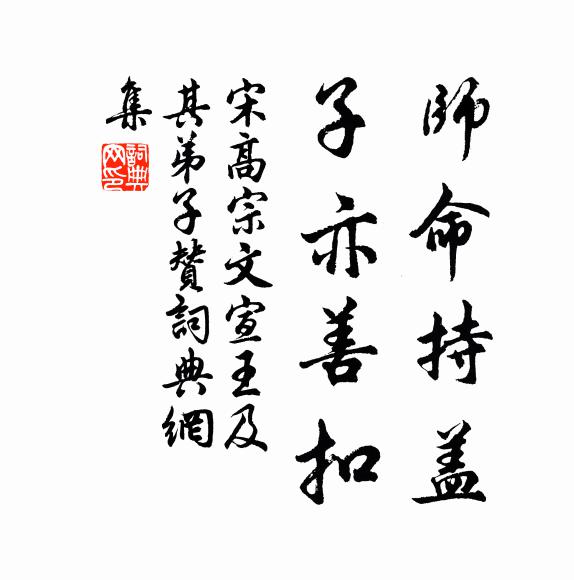 師命持盖
子亦善扣
宋高宗文宣王及
其弟子贊詞典網
集
詞典
网印